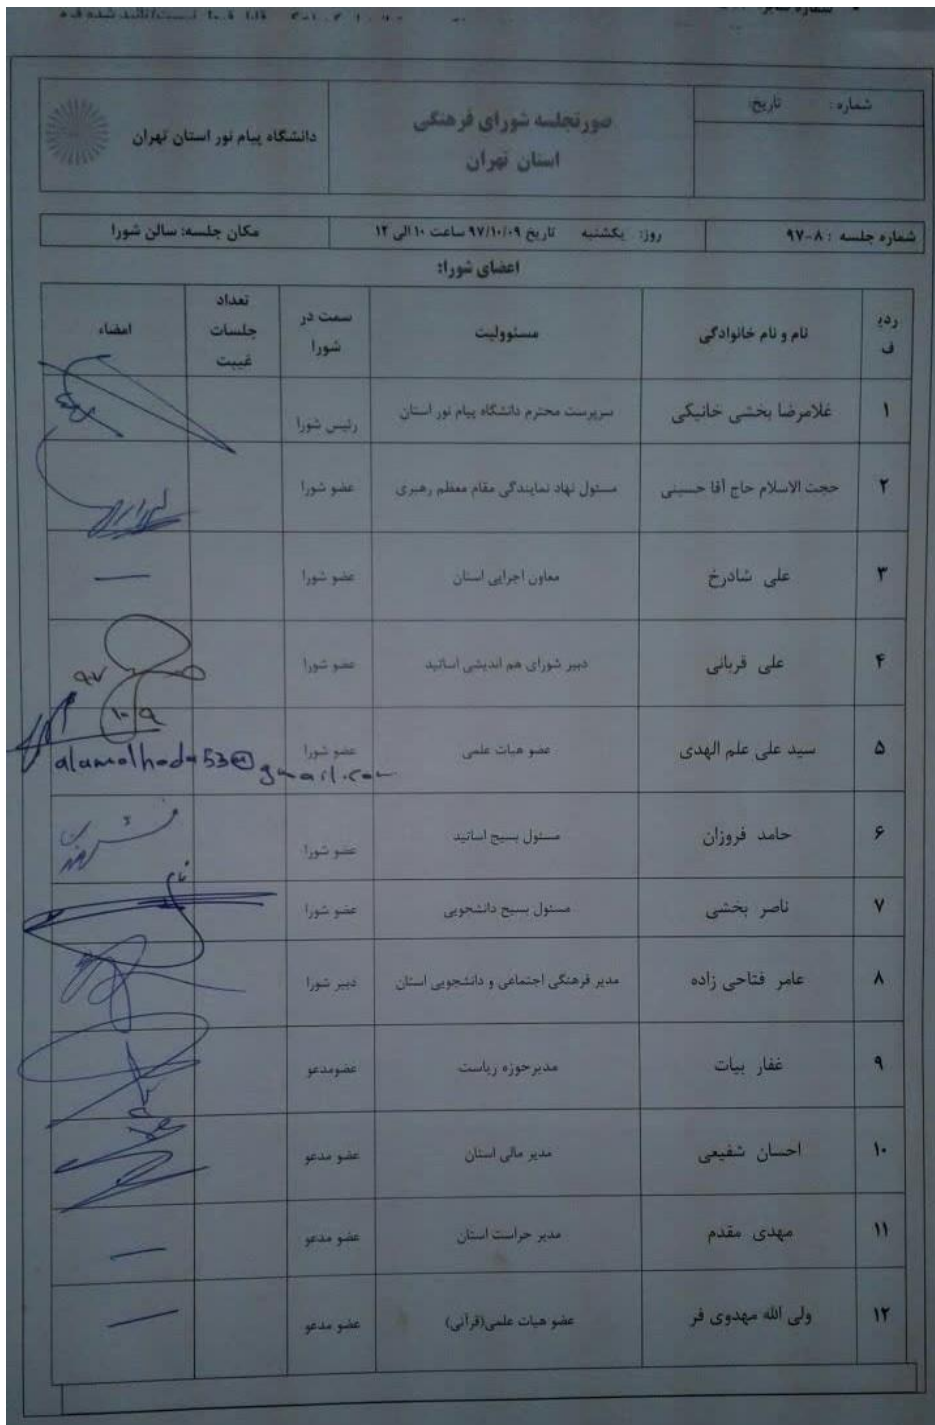 شماره : تاریخ:
صورتجلسه شورای فرهنگی
استان تهران
دانشگاه پیام نور استان تهران
شماره جلسه : ۸-۹۷ روز: یکشنبه تاریخ ۹۷/۱۰/۰۹ ساعت ۱۰ الی ۱۲ مکان جلسه: سالن شورا
اعضای شورا:
ردیف نام و نام خانوادگی مسئوولیت سمت در شورا تعداد جلسات غیبت امضاء
۱ غلامرضا بخشی خانیکی سرپرست محترم دانشگاه پیام نور استان رئیس شورا
۲ حجت الاسلام حاج آقا حسینی مسئول نهاد نمایندگی مقام معظم رهبری عضو شورا
۳ علی شادرخ معاون اجرایی استان عضو شورا —
۴ علی قربانی دبیر شورای هم اندیشی اساتید عضو شورا
۹۷
۱۰/۹
۵ سید علی علم الهدی عضو هیات علمی عضو شورا
alamolhoda53@gmail.com
۶ حامد فروزان مسئول بسیج اساتید عضو شورا
۷ ناصر بخشی مسئول بسیج دانشجویی عضو شورا
۸ عامر فتاحی زاده مدیر فرهنگی اجتماعی و دانشجویی استان دبیر شورا
۹ غفار بیات مدیرحوزه ریاست عضومدعو
۱۰ احسان شفیعی مدیر مالی استان عضو مدعو
۱۱ مهدی مقدم مدیر حراست استان عضو مدعو —
۱۲ ولی الله مهدوی فر عضو هیات علمی(قرآنی) عضو مدعو —